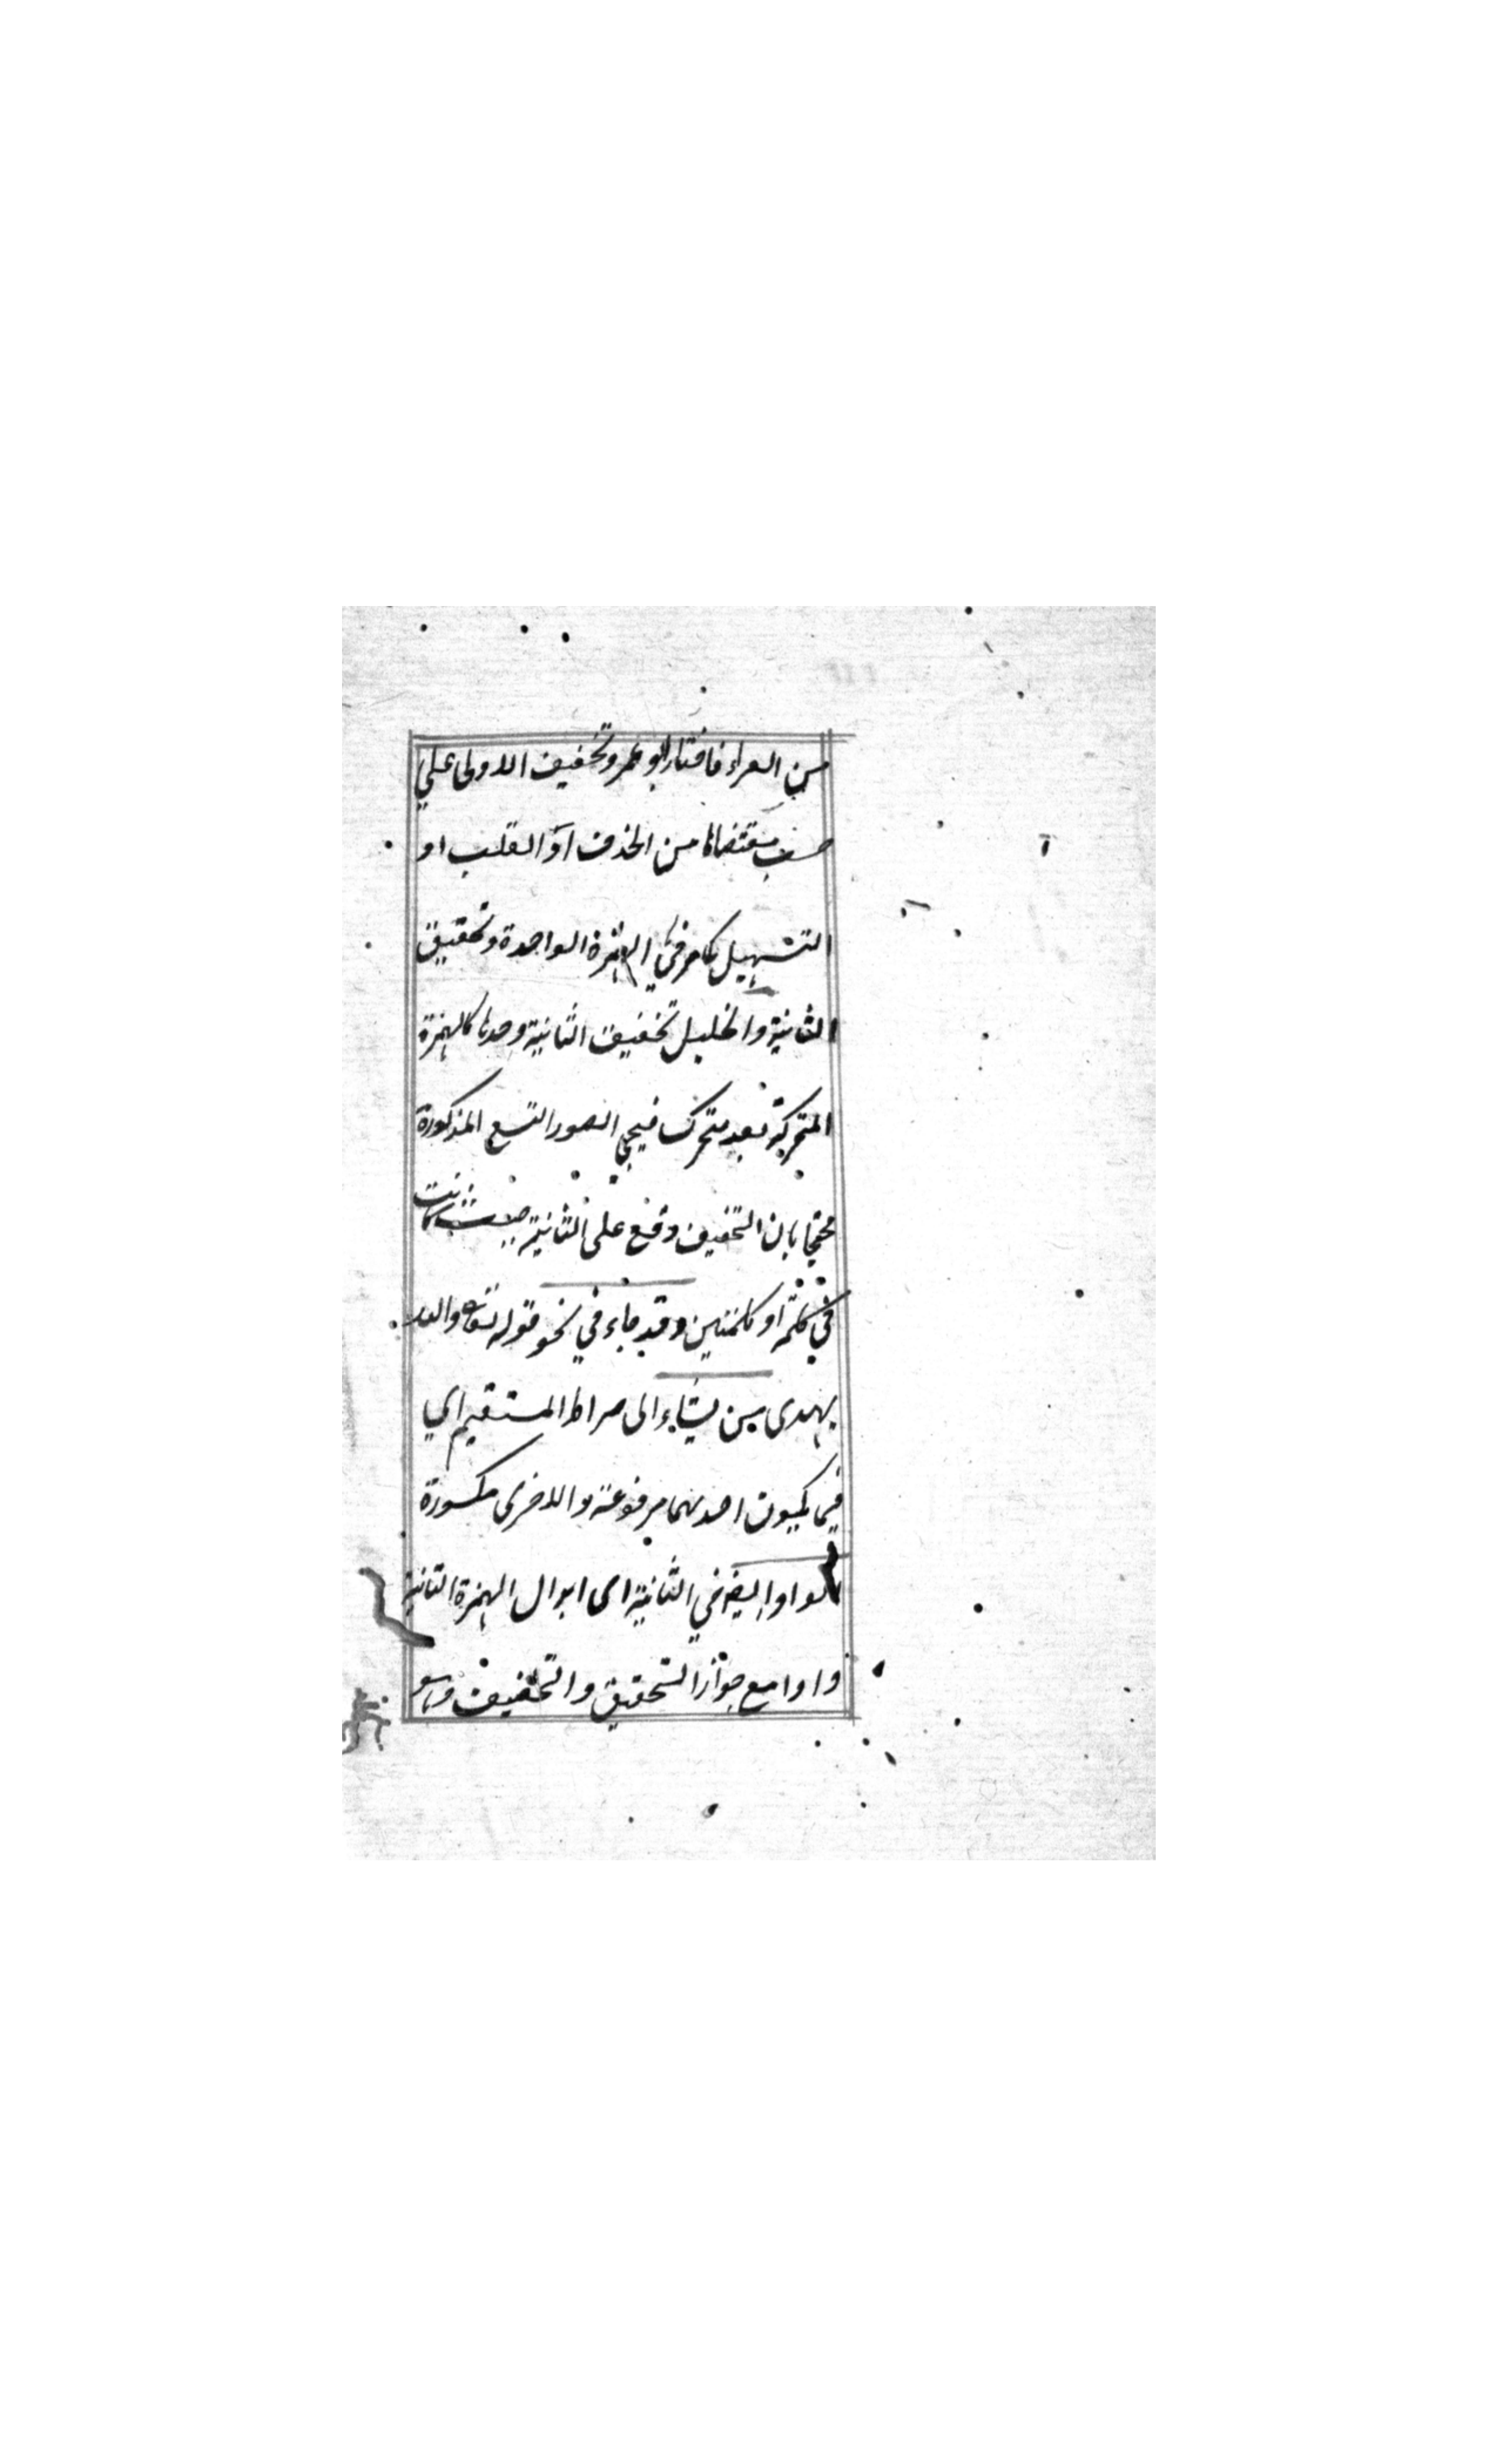 من القراء فاختار ابو عمرو تخفيف الاولى علي
حسب مقتضاها من الحذف او القلب او
التسهيل كما مر في الهمزة الواحدة وتحقيق
الثانية والخليل تخفيف الثانية وحدها كالهمزة
المتحركة بعد متحرك فيجي الصور التسع المذكورة
محتجا بان التخفيف وقع على الثانية حيث كانت
في كلمة او كلمتين وقد جاء في نحو قوله تعالى والله
يهدى من يشاء الى صراط المستقيم اي
فيما يكون احديهما مرفوعة والاخرى مكسورة
الواو ايضا في الثانية اى ابدال الهمزة الثانية
واوا مع جواز التحقيق والتخفيف وهو